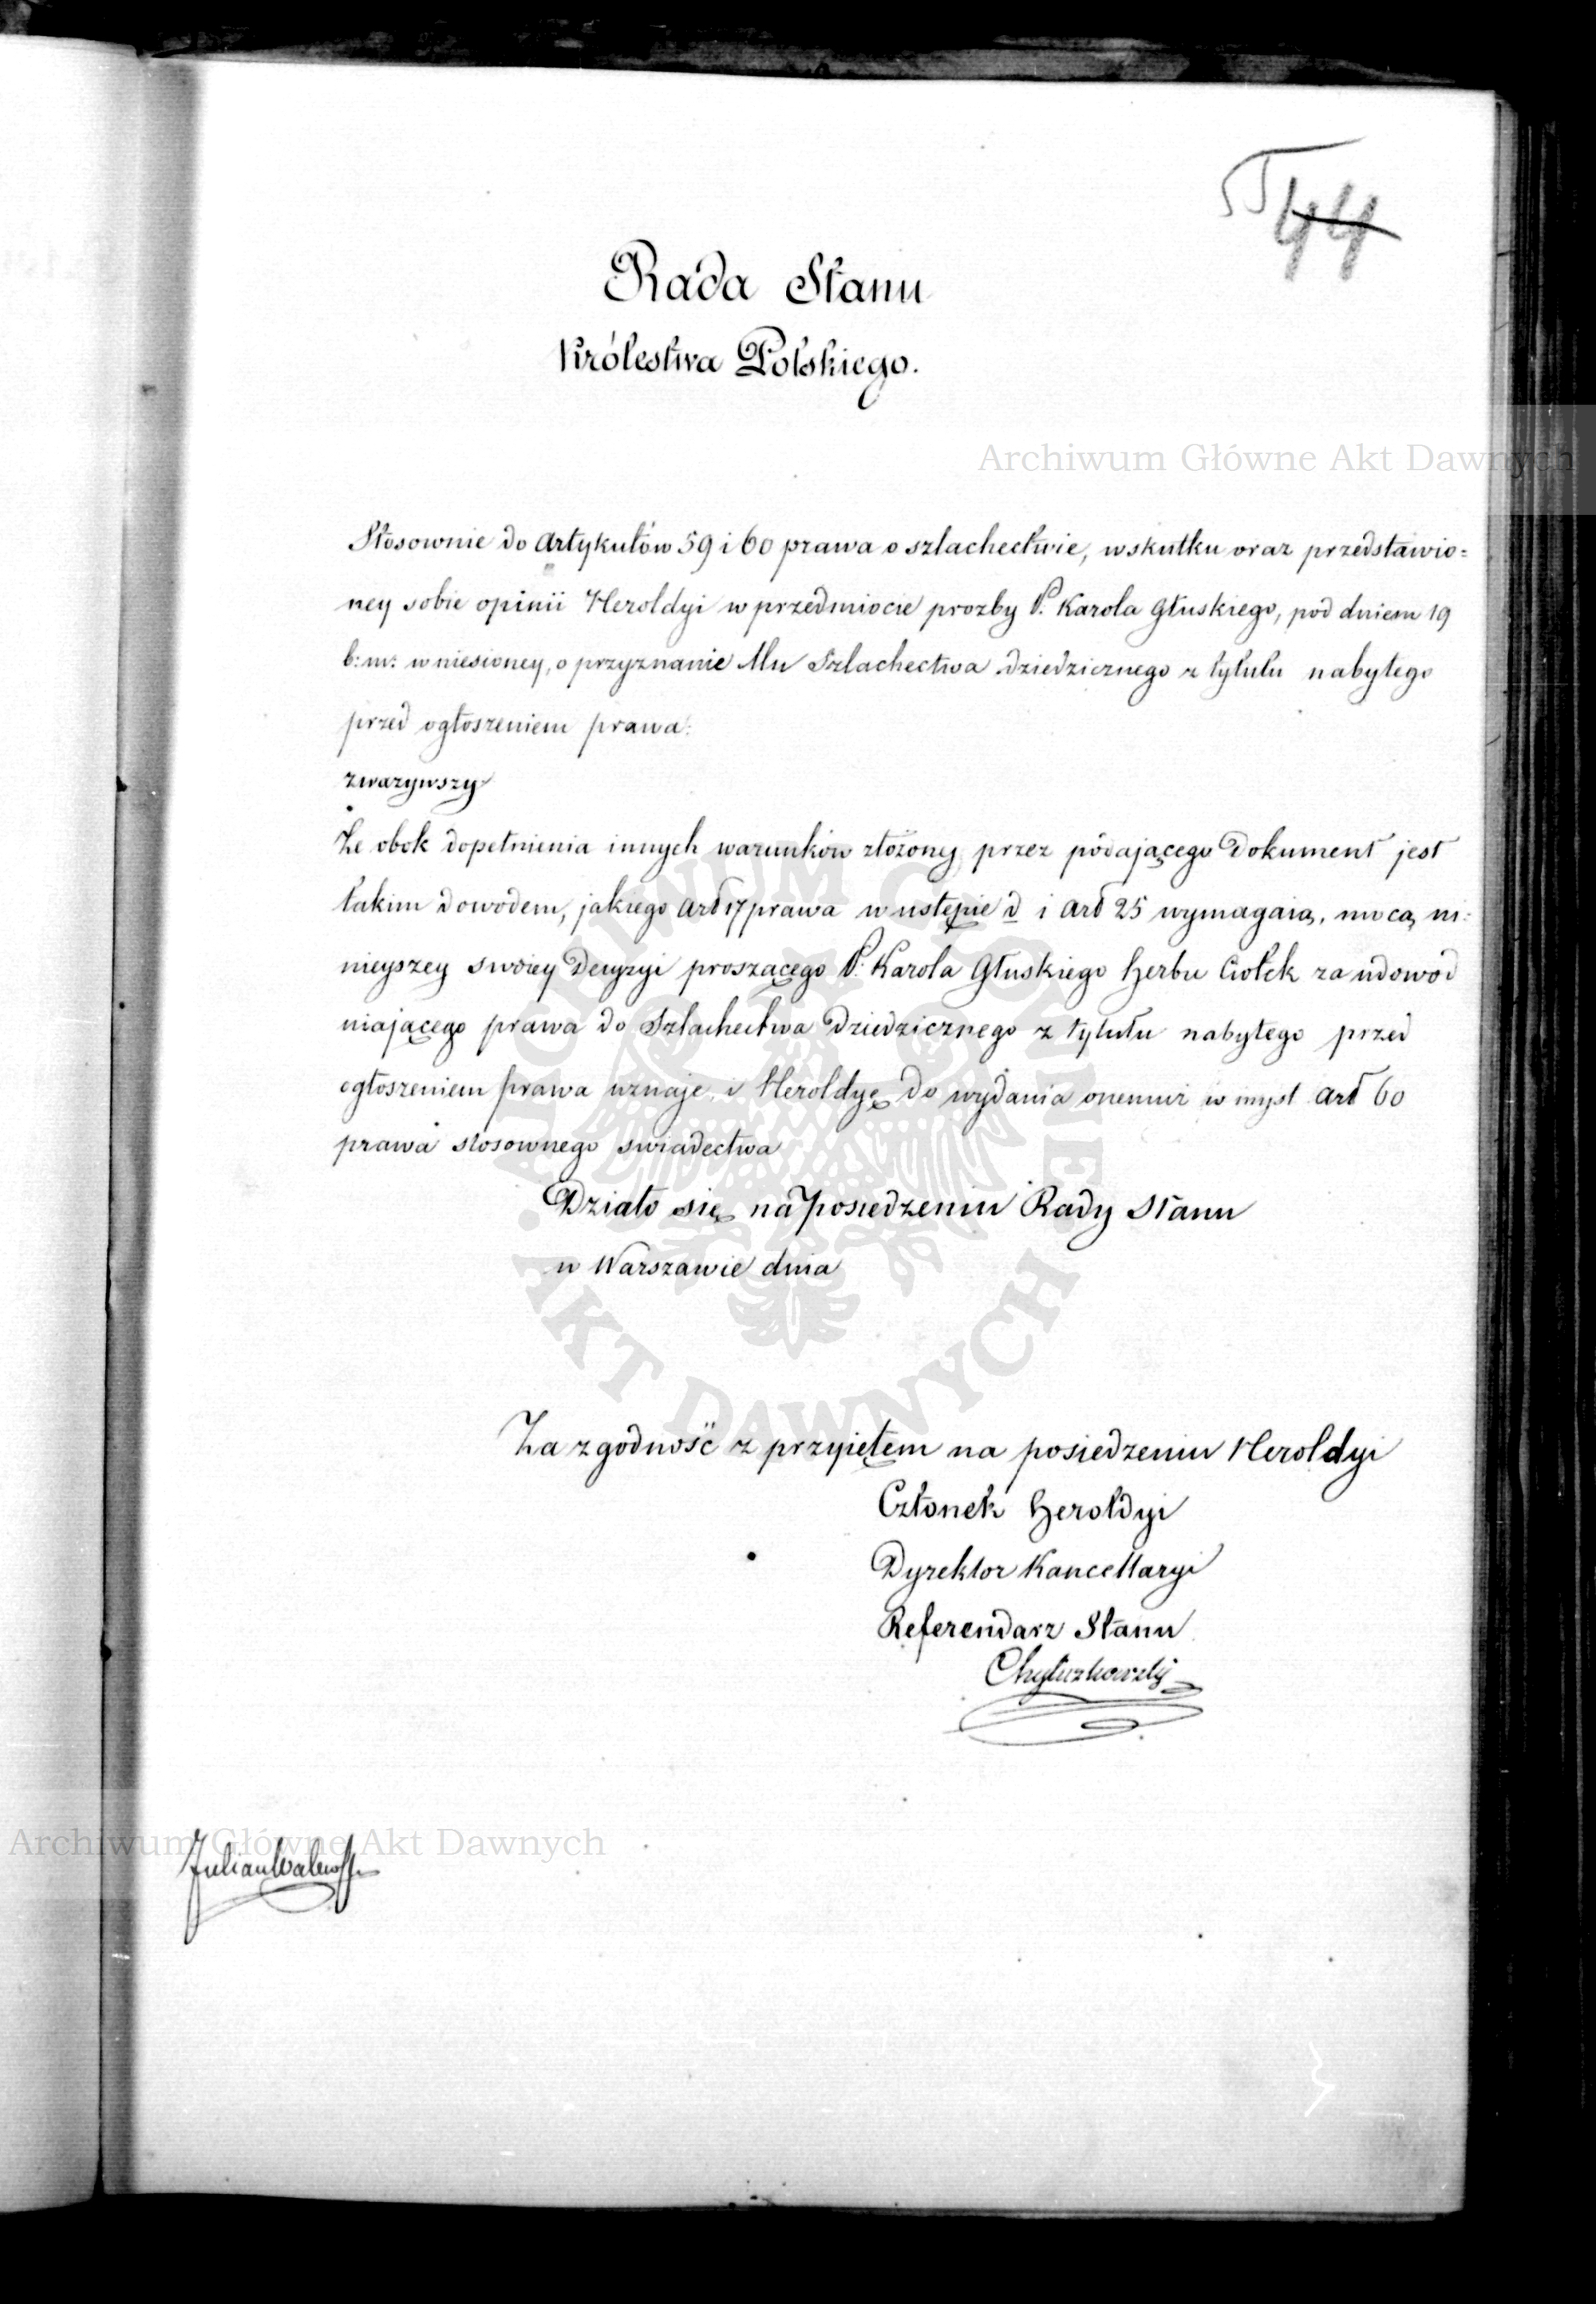 44
Rada Stanu
Królestwa Polskiego.
Archiwum Główne Akt Dawnych
Stosownie do Artykułów 59 i 60 prawa o szlachectwie, w skutku oraz przedstawio=
ney sobie opinii Heroldyi w przedmiocie prozby P. Karola Głuskiego, pod dniem 19
b: m: wniesioney, o przyznanie Mu Szlachectwa dziedzicznego z tytułu nabytego
przed ogłoszeniem prawa:
zwazywszy
Że obok dopełnienia innych warunków złożony przez podającego Dokument jest
takim dowodem, jakiego Art 17 prawa w ustępie d i Art 25 wymagaią, mocą ni=
nieyszey swoiey Decyzyi proszącego P. Karola Głuskiego herbu Ciołek za udowod
niającego prawa do Szlachectwa Dziedzicznego z tytułu nabytego przed
ogłoszeniem prawa uznaje, i Heroldyę do wydania onemuż w myśl Art 60
prawa stosownego swiadectwa
Działo się na Posiedzeniu Rady Stanu
w Warszawie dnia
ARCHIWUM GŁÓWNE AKT DAWNYCH
Za zgodność z przyiętem na posiedzeniu Heroldyi
Członek Heroldyi
Dyrektor Kancellaryi
Referendarz Stanu
Archiwum Główne Akt Dawnych
Julian